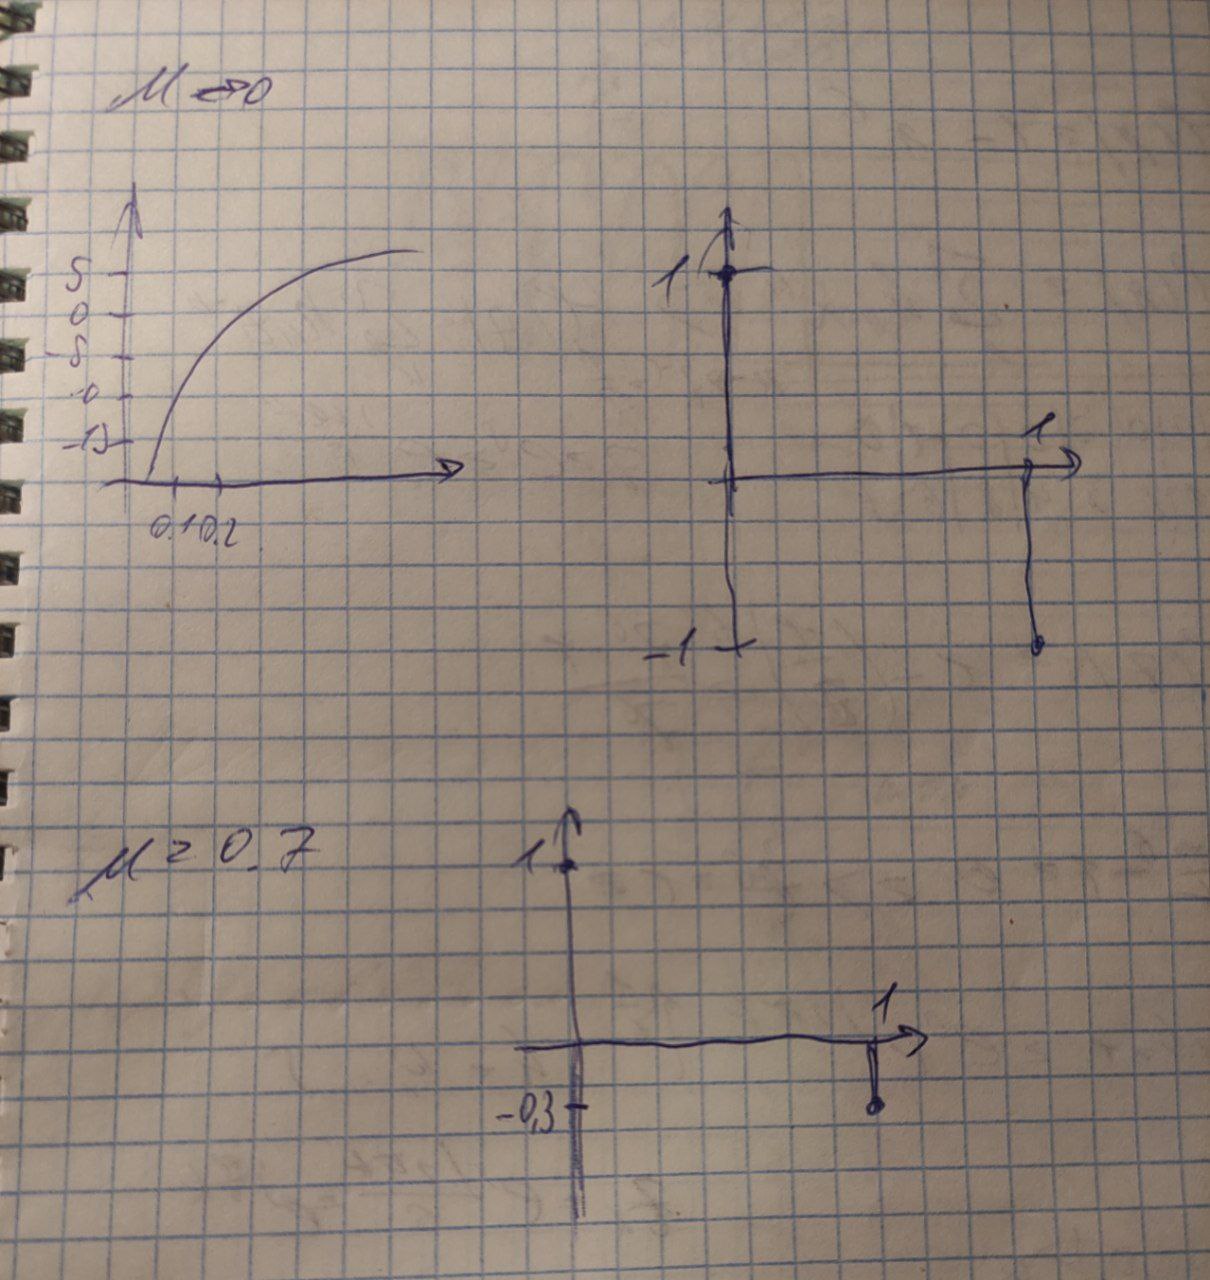 M → 0
5
0
-5
-15
0.1 0.2
1
1
-1
M = 0.7
1
1
-0,3